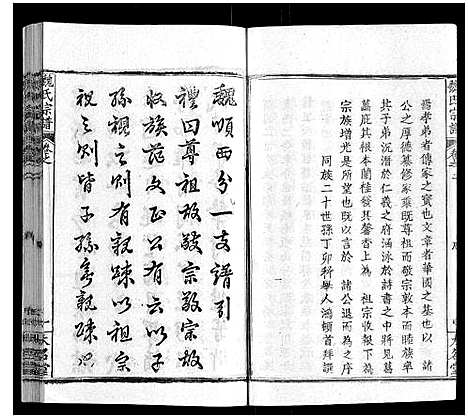 魏氏宗譜
爲孝弟者傳家之寶也文章者華國之基也以 諸
公之厚德纂修家乘既尊祖而敬宗敦本而睦族率
其子弟沉潛於仁義之府涵泳於詩書之中將見葛
藟庇其根本蘭桂發其馨香上為 祖宗收報下為
宗族增光是所望也以言於 諸公退而為之序
同族二十世孫丁卯科舉人鴻頓首拜譔
魏順西分一支譜引
禮曰尊祖故敬宗敬宗故
收族范文正公云以吾祖
孫視之則有親疎以祖宗
視之則皆子孫無親疎然
魏氏宗譜